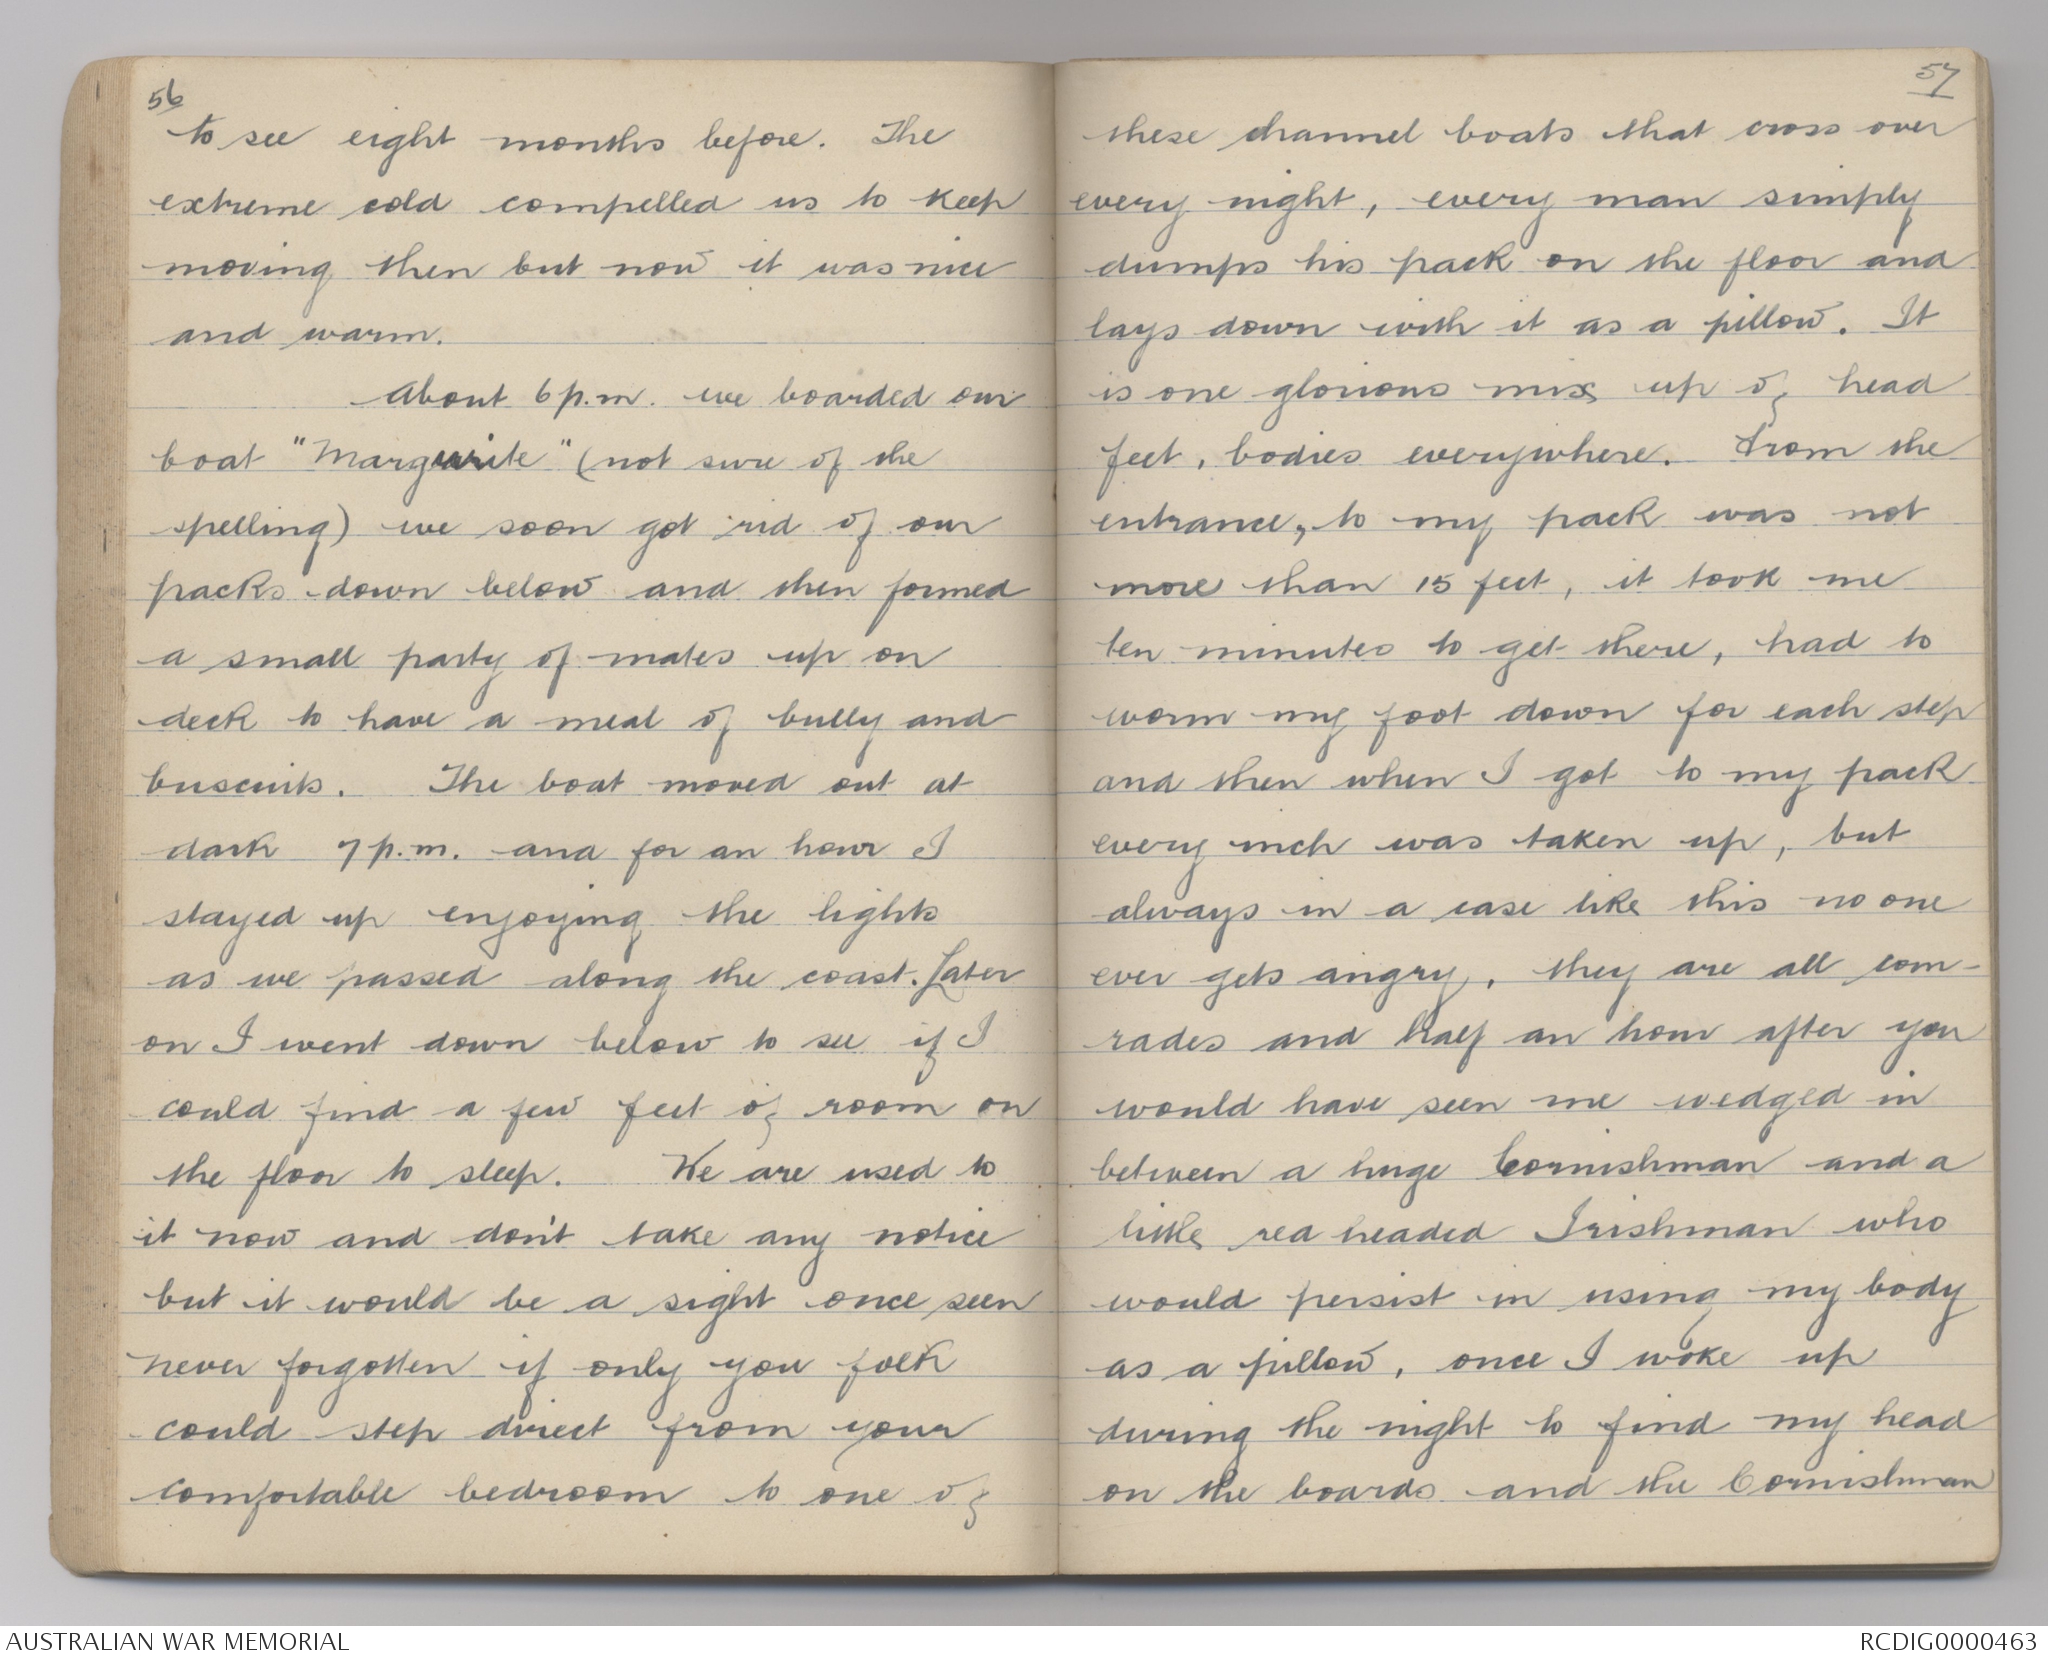 56
to see eight months before. The
extreme cold compelled us to keep
moving then but now it was nice
and warm.
About 6 p.m. we boarded our
boat "Marguerite" (not sure of the
spelling) we soon got rid of our
packs down below and then formed
a small party of mates up on
deck to have a meal of bully and
buscuits. The boat moved out at
dark 7 p.m. and for an hour I
stayed up enjoying the lights
as we passed along the coast. Later
on I went down below to see if I
could find a few feet of room on
the floor to sleep. We are used to
it now and don't take any notice
but it would be a sight once seen
never forgotten if only you folk
could step direct from your
comfortable bedroom to one of
57
these channel boats that cross over
every night, every man simply
dumps his pack on the floor and
lays down with it as a pillow. It
is one glorious mix up of head
feet, bodies everywhere. From the
entrance, to my pack was not
more than 15 feet, it took me
ten minutes to get there, had to
worm my foot down for each step
and then when I got to my pack
every inch was taken up, but
always in a case like this no one
ever gets angry, they are all com-
rades and half an hour after you
would have seen me wedged in
between a huge Cornishman and a
little red headed Irishman who
would persist in using my body
as a pillow, once I woke up
during the night to find my head
on the boards and the Cornishman
AUSTRALIAN WAR MEMORIAL
RCDIG0000463